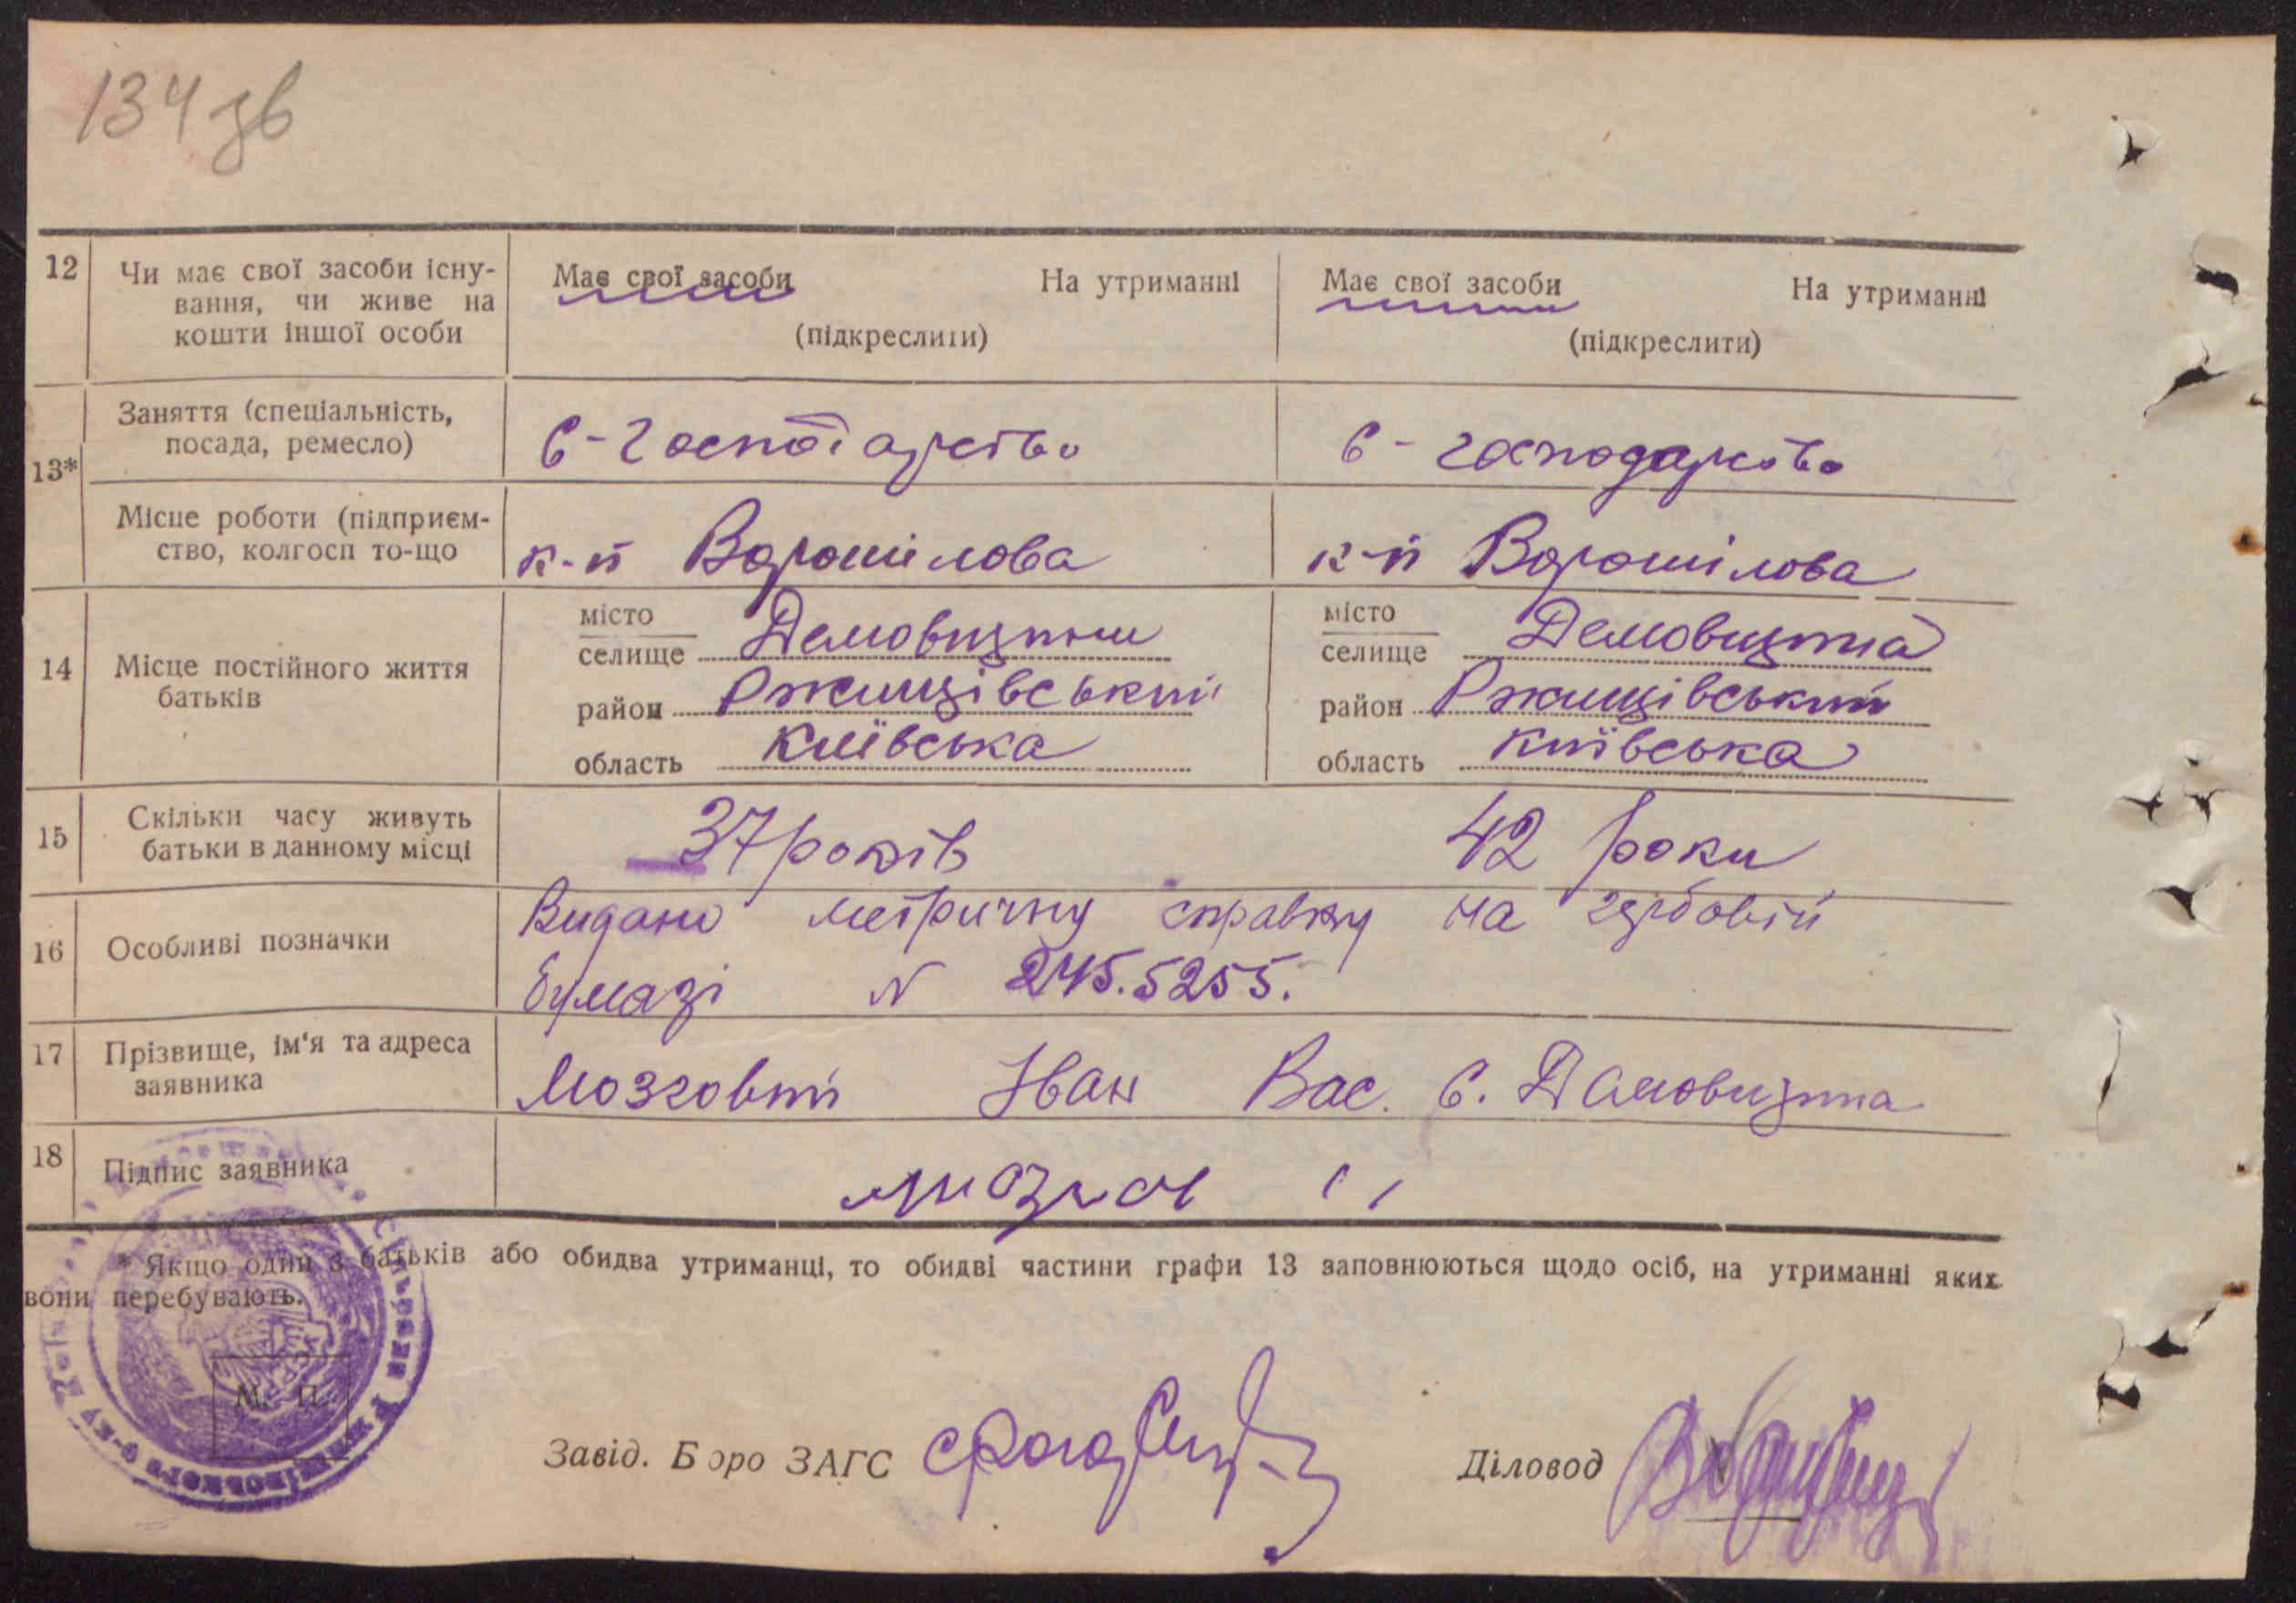 134 зв
12 Чи має свої засоби існу-
вання, чи живе на
кошти іншої особи
Має свої засоби На утриманні
(підкреслити)
Має свої засоби На утриманні
(підкреслити)
13*
Заняття (спеціальність,
посада, ремесло)
С-господарство
С-господарство
Місце роботи (підприєм-
ство, колгосп то-що
к-п Ворошилова
к-п Ворошилова
14 Місце постійного життя
батьків
місто
селище Демовщина
район Ржищівський
область Київська
місто
селище Демовщина
район Ржищівський
область Київська
15 Скільки часу живуть
батьки в данному місці
37 років
42 роки
16 Особливі позначки
Видано метричну справку на гербовій
бумазі N 245.5255.
17 Прізвище, ім'я та адреса
заявника
Мозговий Іван Вас. С. Демовщина
18 Підпис заявника
* Якщо один з батьків або обидва утриманці, то обидві частини графи 13 заповнюються щодо осіб, на утриманні яких
вони перебувають.
М. П.
Завід. Бюро ЗАГС
Діловод